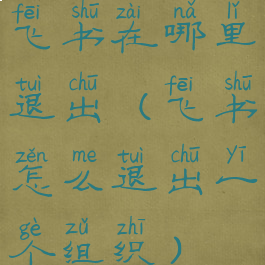 fēi shū zài nǎ lǐ
飞书在哪里
tuì chū fēi shū
退出（飞书
zěn me tuì chū yī
怎么退出一
gè zǔ zhī
个组织）